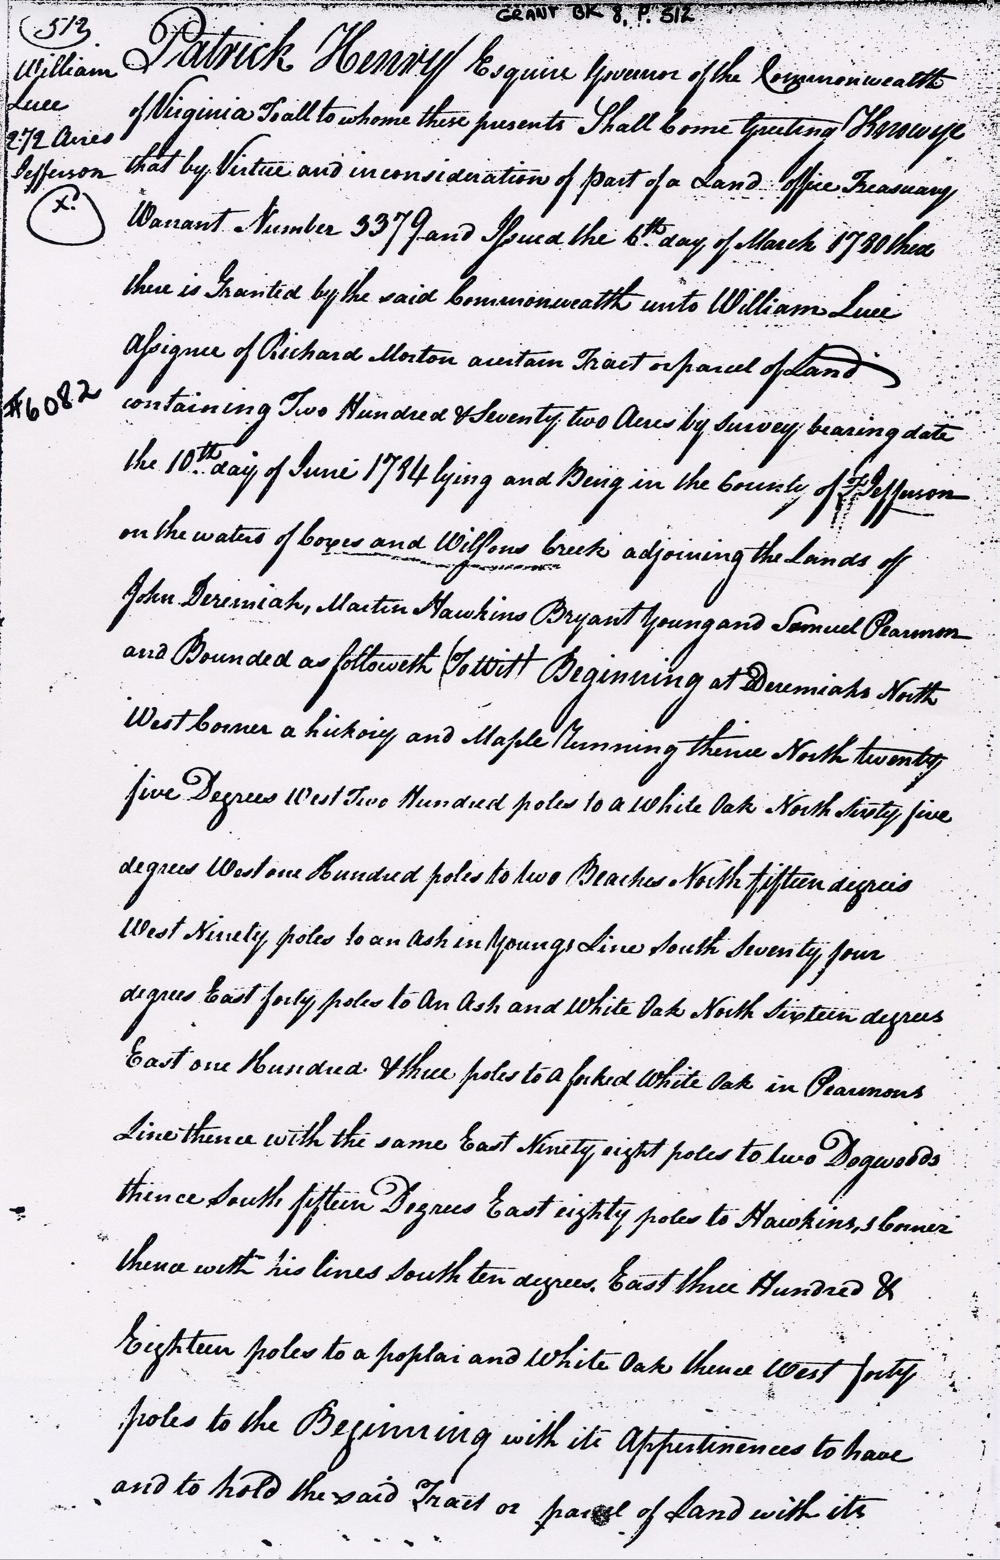 GRANT BK 8, P. 512
512
William
Luce
272 Acres
Jefferson
X?
#6082
Patrick Henry Esquire Governor of the Commonwealth
of Virginia To all to whome these presents Shall Come Greeting Know ye
that by Virtue and in consideration of part of a Land office Treasuary
Warrant Number 3379 and Issued the 6th day of March 1780 thed
there is Granted by the said Commonwealth unto William Luce
Assignee of Richard Morton a certain Tract or parcel of Land
containing Two Hundred & Seventy two Acres by survey bearing date
the 10th day of June 1784 lying and Being in the County of Jefferson
on the waters of Coxes and Wilsons Creek adjoining the Lands of
John Deremiah, Martin Hawkins Bryant Young and Samuel Pearmon
and Bounded as followeth (To Wit) Beginning at Deremiahs North
West Corner a hickory and Maple Running thence North twenty
five Degrees West Two Hundred poles to a White Oak North Sixty five
degrees West one Hundred poles to two Beaches North fifteen degrees
West Ninety poles to an Ash in Youngs Line South Seventy four
degrees East forty poles to An Ash and White Oak North Sixteen degrees
East one Hundred & three poles to a forked White Oak in Pearmons
Line thence with the same East Ninety eight poles to two Dogwoods
thence South fifteen Degrees East eighty poles to Hawkins,s Corner
thence with his lines South ten degrees. East three Hundred &
Eighteen poles to a poplar and White Oak thence West forty
poles to the Beginning with its Appertinences to have
and to hold the said Tract or parcel of Land with its